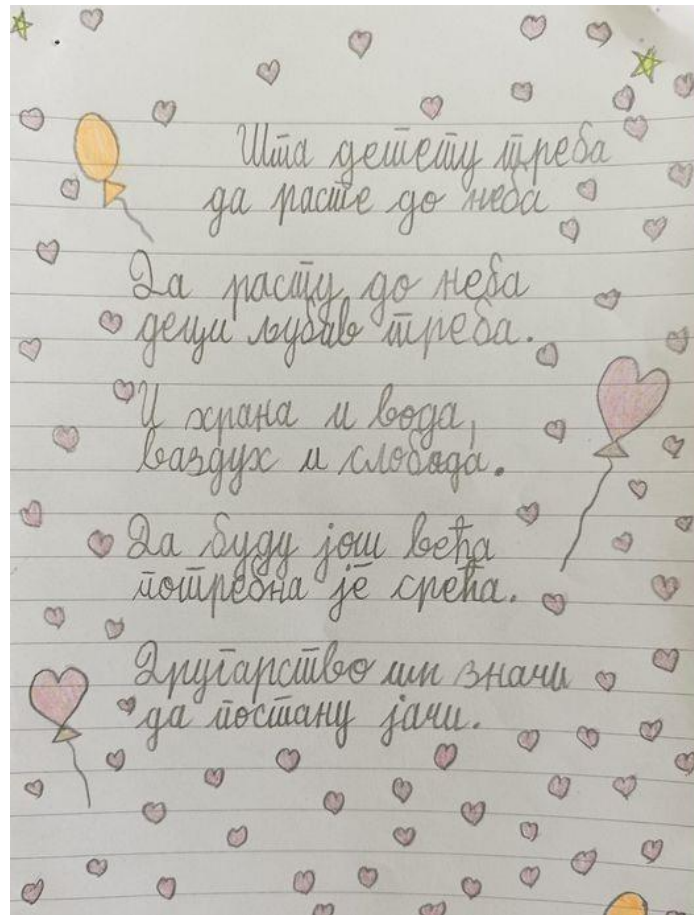 Шта детету треба
да расте до неба
Да расту до неба
деци љубав треба.
И храна и вода,
ваздух и слобода.
Да буду још већа
потребна је срећа.
Другарство им значи
да постану јачи.